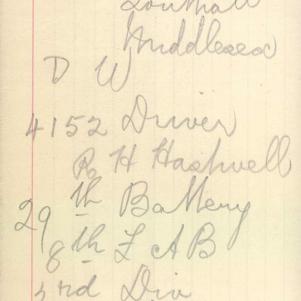 Southall
Middlesex
D W
4152 Driver
R H Hashwell
29th Battery
8th F A B
3rd Div